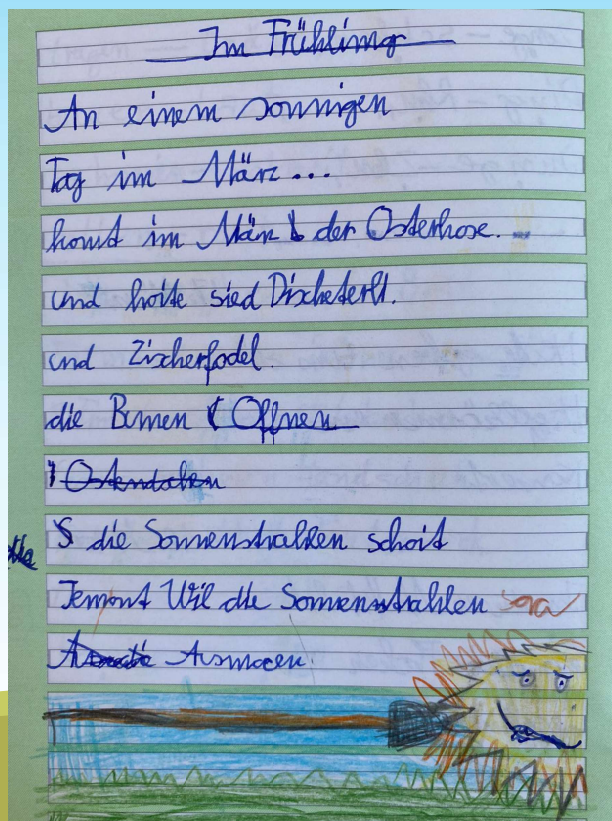 Im Frühling
An einem sonnigen
Tag im März...
komt im März der Osterhase.
und hoite sied
und Zischerfodel.
die Bumen Offnen
die Sonnenstrahlen schoit
Jemont Wil die Sonnenstrahlen
Ausmacen.